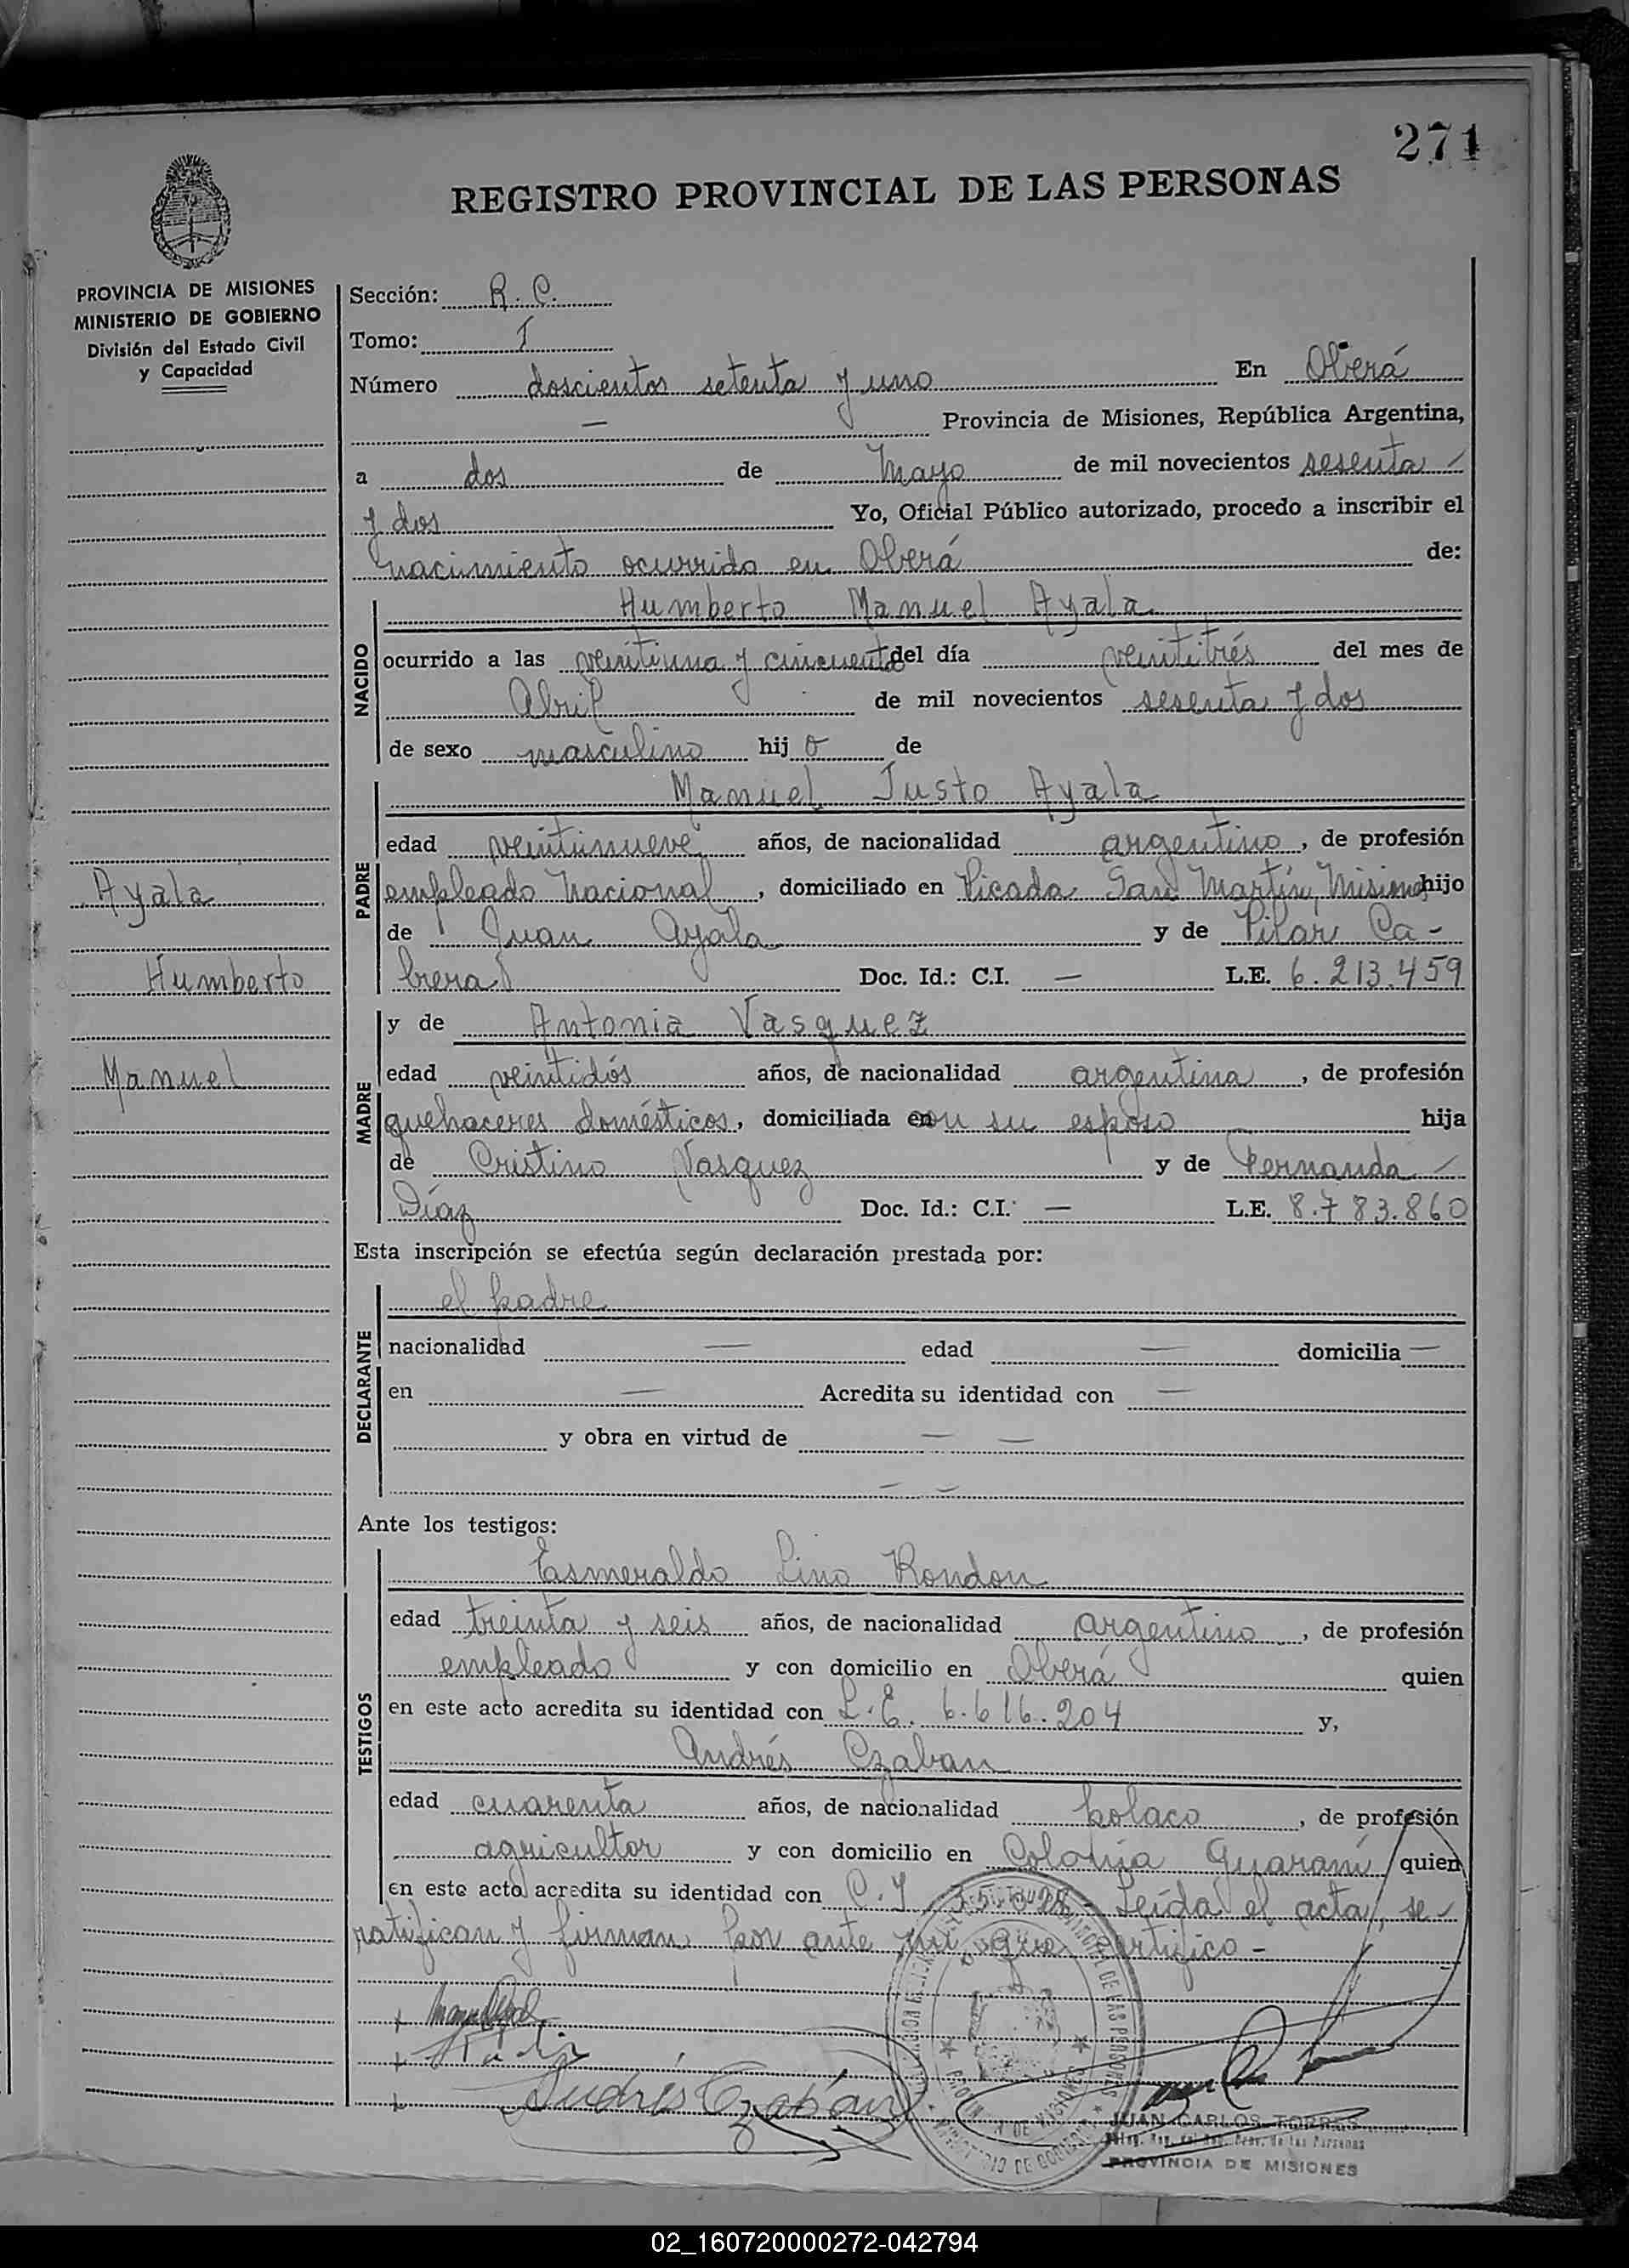 271
REGISTRO PROVINCIAL DE LAS PERSONAS
PROVINCIA DE MISIONES
MINISTERIO DE GOBIERNO
División del Estado Civil
y Capacidad
Sección: R. C.
Tomo: I
Número doscientos setenta y uno En Oberá
— Provincia de Misiones, República Argentina,
a dos de Mayo de mil novecientos sesenta
y dos Yo, Oficial Público autorizado, procedo a inscribir el
nacimiento ocurrido en Oberá de:
NACIDO
Humberto Manuel Ayala
ocurrido a las veintiuna y cincuenta del día veintitrés del mes de
Abril de mil novecientos sesenta y dos
de sexo masculino hijo de
PADRE
Manuel Justo Ayala
edad veintinueve años, de nacionalidad argentino, de profesión
empleado Nacional, domiciliado en Picada San Martín, Misiones hijo
de Juan Ayala y de Pilar Ca-
brera Doc. Id.: C.I. — L.E. 6.213.459
Ayala
Humberto
Manuel
MADRE
y de Antonia Vasquez
edad veintidós años, de nacionalidad argentina, de profesión
quehaceres domésticos, domiciliada con su esposo hija
de Cristino Vasquez y de Fernanda
Díaz Doc. Id.: C.I. — L.E. 8.783.860
Esta inscripción se efectúa según declaración prestada por:
DECLARANTE
el padre
nacionalidad — edad — domicilia —
en — Acredita su identidad con —
y obra en virtud de — —
— —
Ante los testigos:
TESTIGOS
Esmeraldo Lino Rondon
edad treinta y seis años, de nacionalidad argentino, de profesión
empleado y con domicilio en Oberá quien
en este acto acredita su identidad con L.E. 6.616.204 y,
Andrés Czaban
edad cuarenta años, de nacionalidad polaco, de profesión
agricultor y con domicilio en Colonia Guaraní quien
en este acto acredita su identidad con C.I. Leída el acta, se
ratifican y firman por ante mi, que certifico -
Andrés Czabán
JUAN CARLOS TORRES
PROVINCIA DE MISIONES
02_160720000272-042794